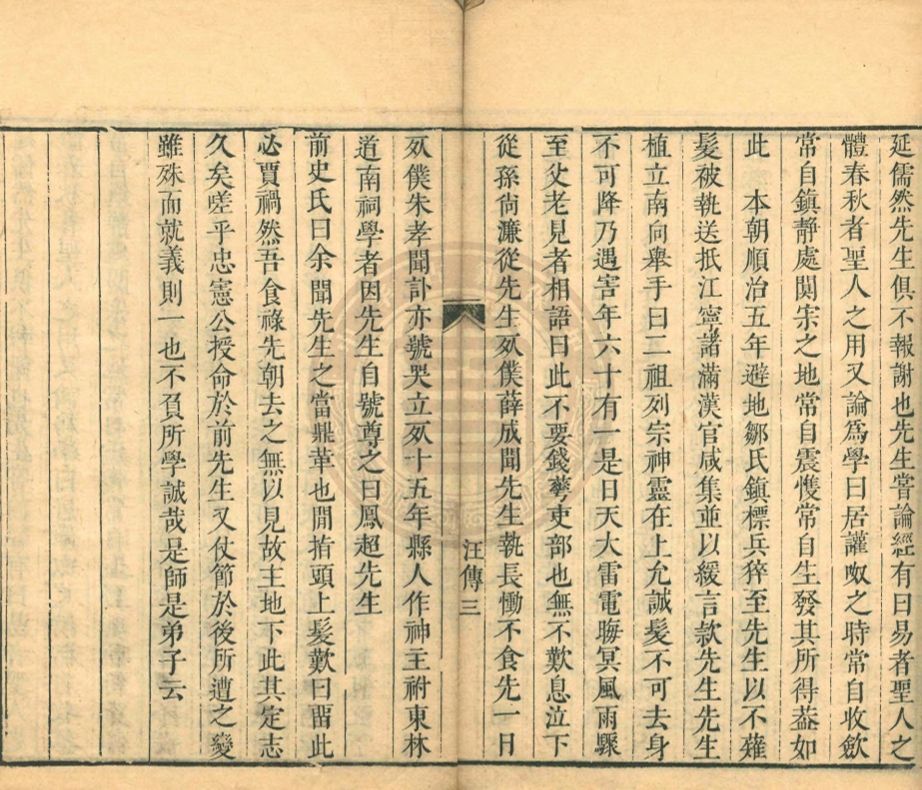 延儒然先生俱不報謝也先生嘗論經有曰易者聖人之
體春秋者聖人之用又論爲學曰居讙呶之時常自收歛
常自鎮靜處闃宗之地常自震悚常自生發其所得葢如
此　本朝順治五年避地鄒氏鎮標兵猝至先生以不薙
髮被執送抵江寧諸滿漢官咸集並以緩言款先生先生
植立南向舉手曰二祖列宗神靈在上允誠髮不可去身
不可降乃遇害年六十有一是日天大雷電晦冥風雨驟
至父老見者相語曰此不要錢蕐吏部也無不歎息泣下
從孫尙濂從先生死僕薛成聞先生執長慟不食先一日
汪傳三
死僕朱孝聞訃亦號哭立死十五年縣人作神主祔東林
道南祠學者因先生自號尊之曰鳳超先生
前史氏曰余聞先生之當鼎革也閒揩頭上髮歎曰畱此
必賈禍然吾食祿先朝去之無以見故主地下此其定志
久矣嗟乎忠憲公授命於前先生又仗節於後所遭之變
雖殊而就義則一也不負所學誠哉是師是弟子云